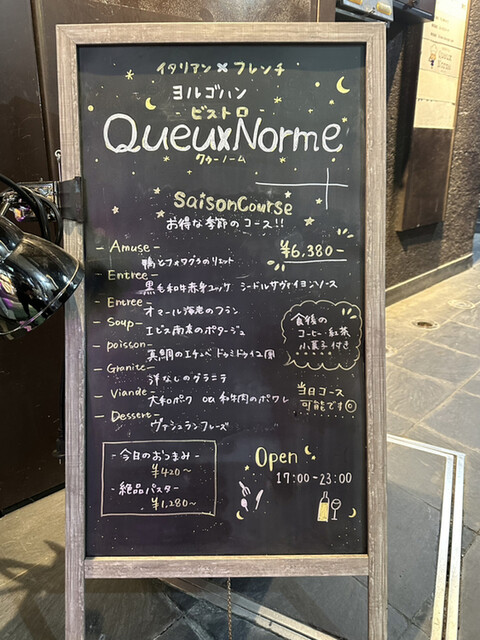 イタリアン × フレンチ
ヨルゴハン
- ビストロ -
QueuxNorme
クゥーノーム
SaisonCourse
お得な季節のコース!!
¥6,380-
- Amuse -
鴨とフォワグラのリエット
- Entree -
黒毛和牛赤身ユッケ シードルサヴァイヨンソース
- Entree -
オマール海老のフラン
- Soup -
エビス南京のポタージュ
- poisson -
真鯛のエチュベ
- Granite -
洋なしのグラニテ
- Viande -
大和ポーク ou 和牛肉のポワレ
- Dessert -
ヴァシュランフレーズ
食後の
コーヒー・紅茶
小菓子付き
当日コース
可能です
- 今日のおつまみ -
¥420~
- 絶品パスタ -
¥1,280~
Open
17:00~23:00